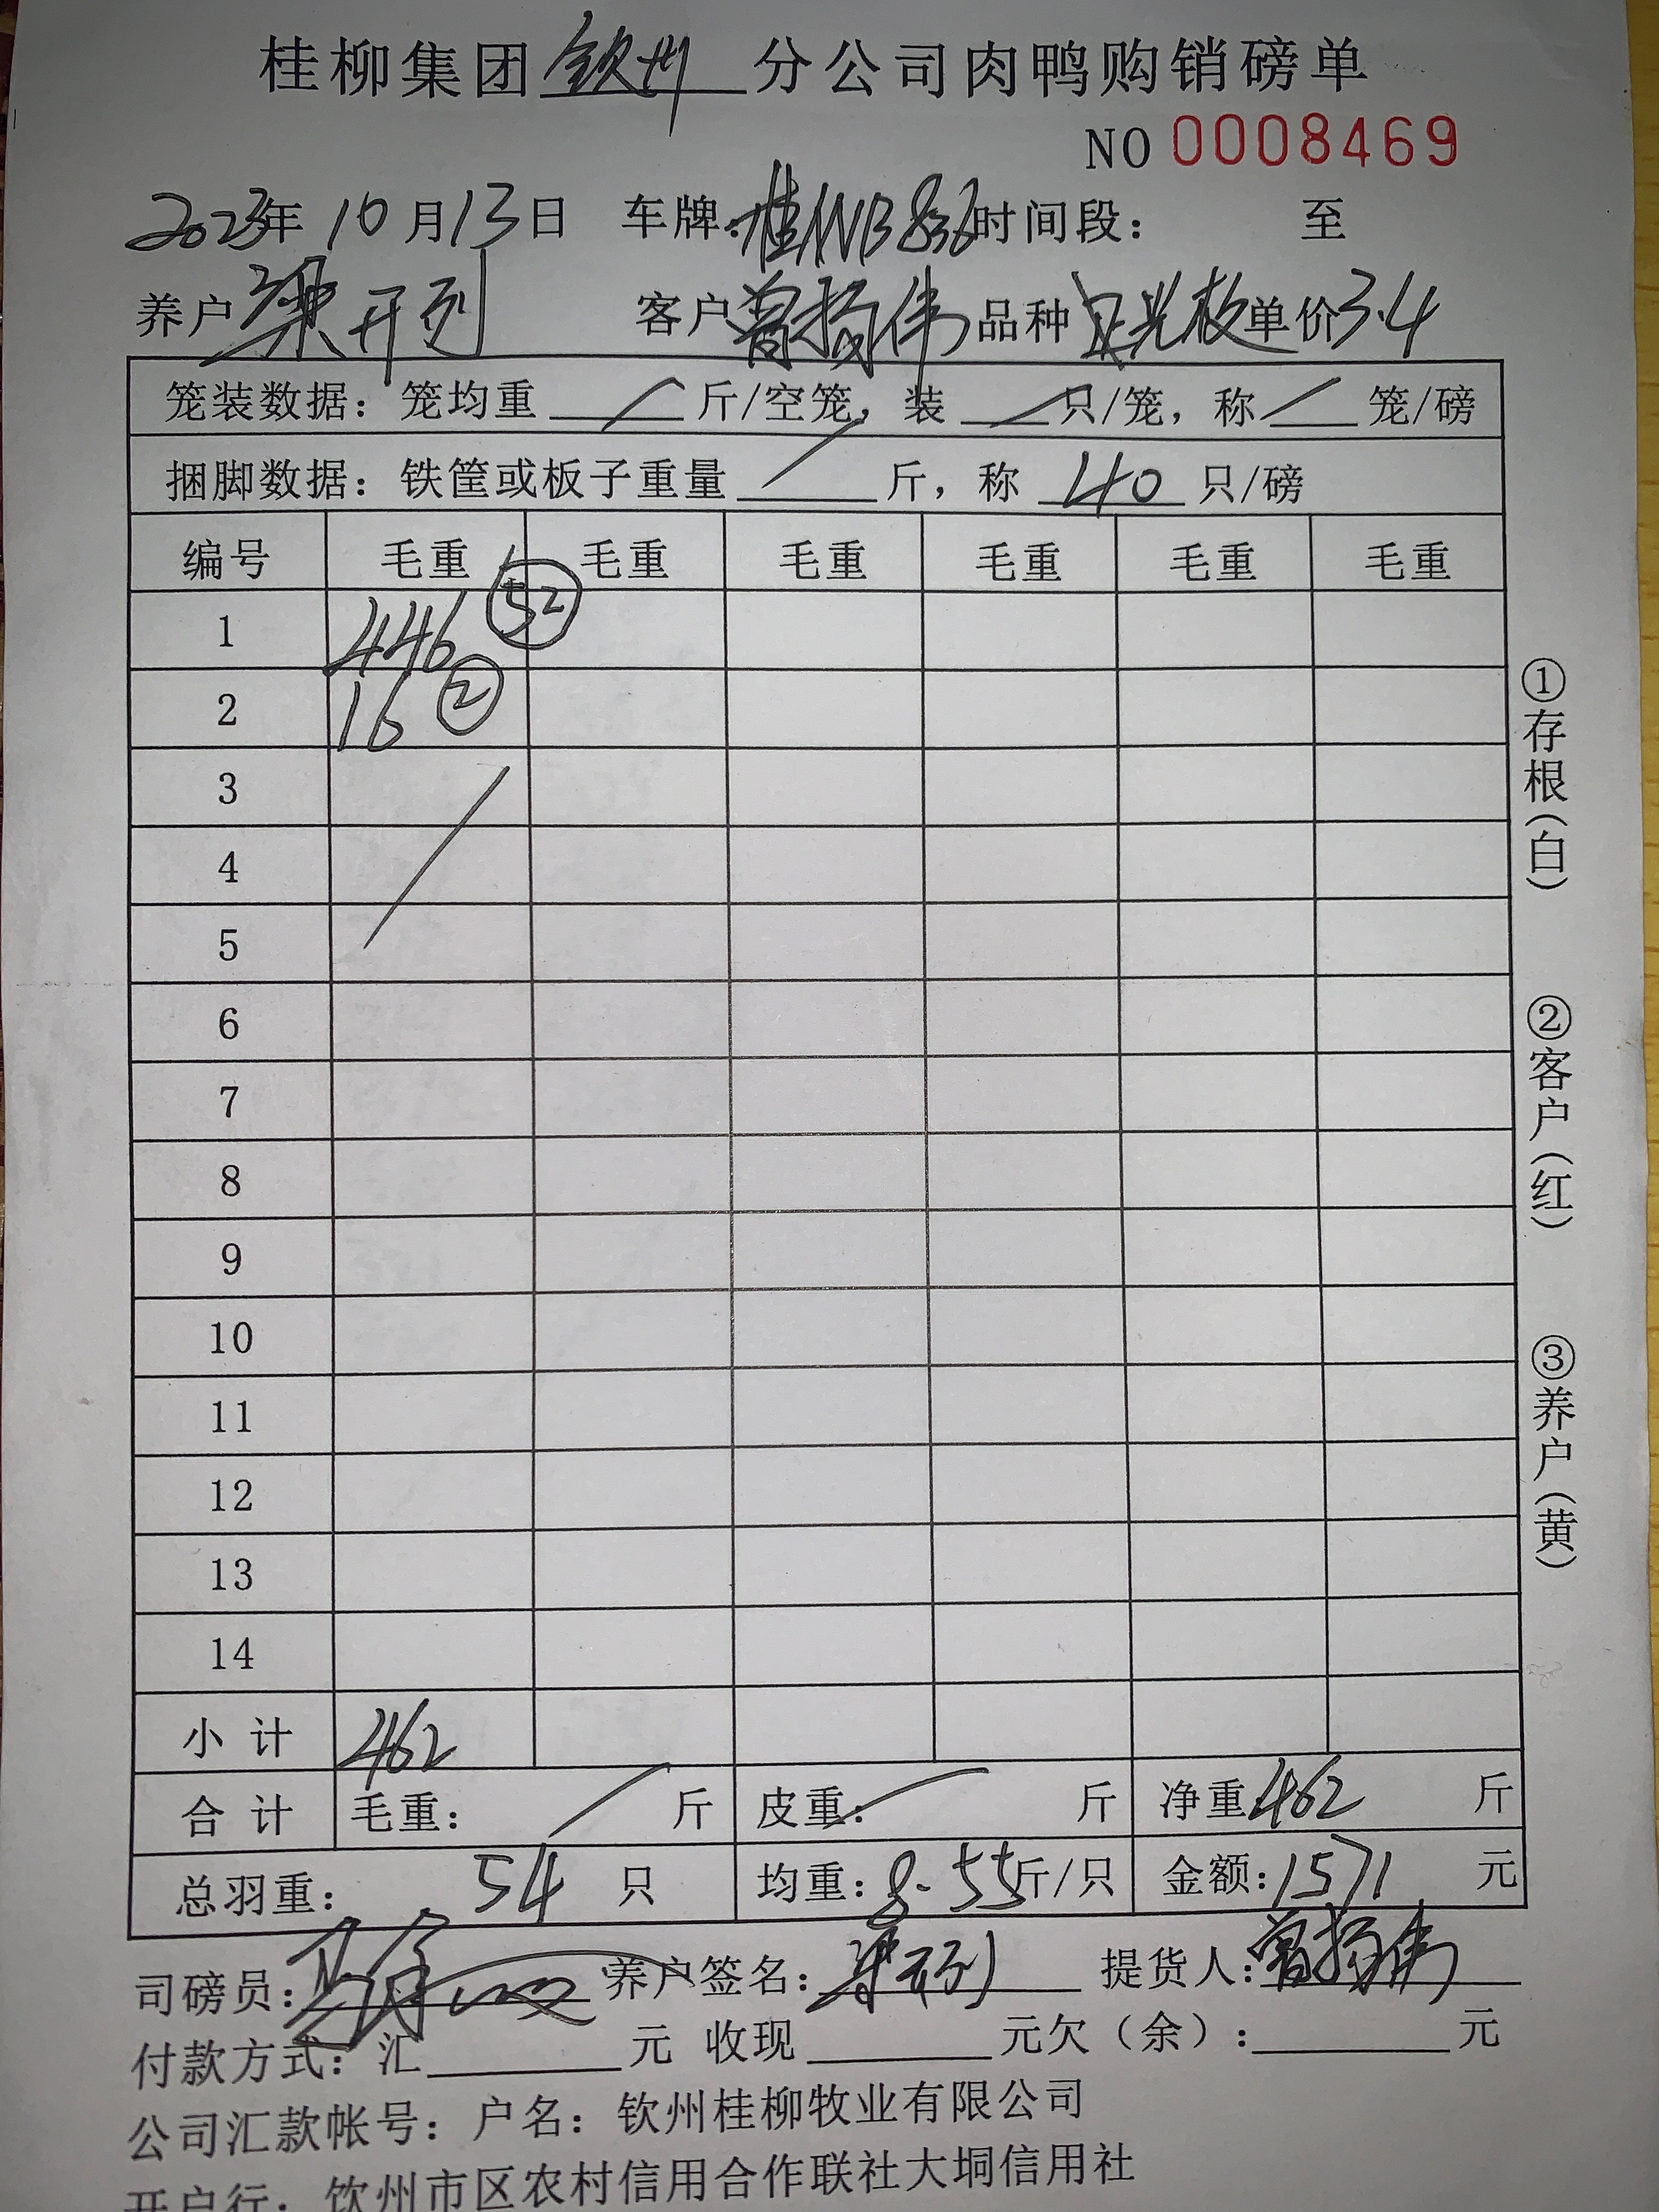 桂柳集团 钦州 分公司肉鸭购销磅单
NO 0008469
2023年 10月13日 车牌: 桂 时间段: 至
养户 梁开列 客户 曾扬伟 品种 单价 3.4
笼装数据: 笼均重 / 斤/空笼, 装 / 只/笼, 称 / 笼/磅
捆脚数据: 铁筐或板子重量 / 斤, 称 40 只/磅
编号 毛重 毛重 毛重 毛重 毛重 毛重
1 446 (52)
2 16 (2)
3
4
5
6
7
8
9
10
11
12
13
14
小 计 462
合 计 毛重: / 斤 皮重: / 斤 净重 462 斤
总羽重: 54 只 均重: 8.55 斤/只 金额: 1571 元
司磅员: 养户签名: 梁开列 提货人: 曾扬伟
付款方式: 汇 元 收现 元欠(余): 元
公司汇款帐号: 户名: 钦州桂柳牧业有限公司
开户行: 钦州市区农村信用合作联社大垌信用社
①存根(白)
②客户(红)
③养户(黄)